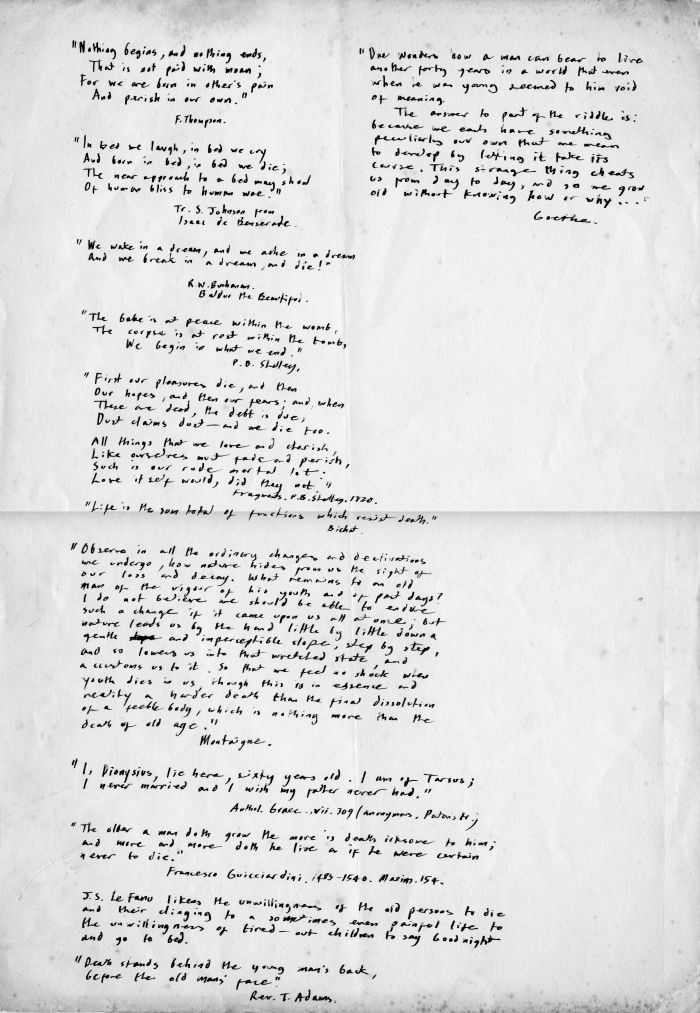 "Nothing begins, and nothing ends,
That is not paid with moan;
For we are born in other's pain
And perish in our own."
F. Thompson.
"In bed we laugh, in bed we cry
And born in bed, in bed we die;
The near approach to a bed may show
Of human bliss to human woe."
Tr. S. Johnson from
Isaac de Benserade.
"We wake in a dream, and we ache in a dream
And we break in a dream, and die!"
R.W. Buchanan.
Baldur the Beautiful.
"The babe is at peace within the womb,
The corpse is at rest within the tomb,
We begin in what we end."
P.B. Shelley.
"First our pleasures die, and then
Our hopes, and then our fears; and when
These are dead, the debt is due,
Dust claims dust — and we die too.
All things that we love and cherish,
Like ourselves must fade and perish,
Such is our rude mortal lot:
Love itself would, did they not."
Fragments. P.B. Shelley, 1820.
"Life is the sum total of functions which resist death."
Bichat.
"Observe in all the ordinary changes and declinations
we undergo, how nature hides from us the sight of
our loss and decay. What remains to an old
man of the vigour of his youth and of past days?
I do not believe we should be able to endure
such a change if it came upon us all at once; but
nature leads us by the hand little by little down a
gentle and imperceptible slope, step by step,
and so lowers us into that wretched state, and
accustoms us to it. So that we feel no shock when
youth dies in us, though this is in essence and
reality a harder death than the final dissolution
of a feeble body, which is nothing more than the
death of old age."
Montaigne.
"I, Dionysius, lie here, sixty years old. I am of Tarsus;
I never married and I wish my father never had."
Anthol. Graec. vii. 309 (anonymous,
"The older a man doth grow the more is death irksome to him;
and more and more doth he live as if he were certain
never to die."
Francesco Guicciardini. 1483-1540. Maxim. 154.
J.S. Le Fanu likens the unwillingness of the old persons to die
and their clinging to a sometimes even painful life to
the unwillingness of tired-out children to say Goodnight
and go to bed.
"Death stands behind the young man's back,
before the old man's face".
Rev. T. Adams.
"One wonders how a man can bear to live
another forty years in a world that even
when he was young seemed to him void
of meaning.
The answer to part of the riddle is:
because we each have something
peculiarly our own that we mean
to develop by letting it take its
course. This strange thing cheats
us from day to day, and so we grow
old without knowing how or why..."
Goethe.